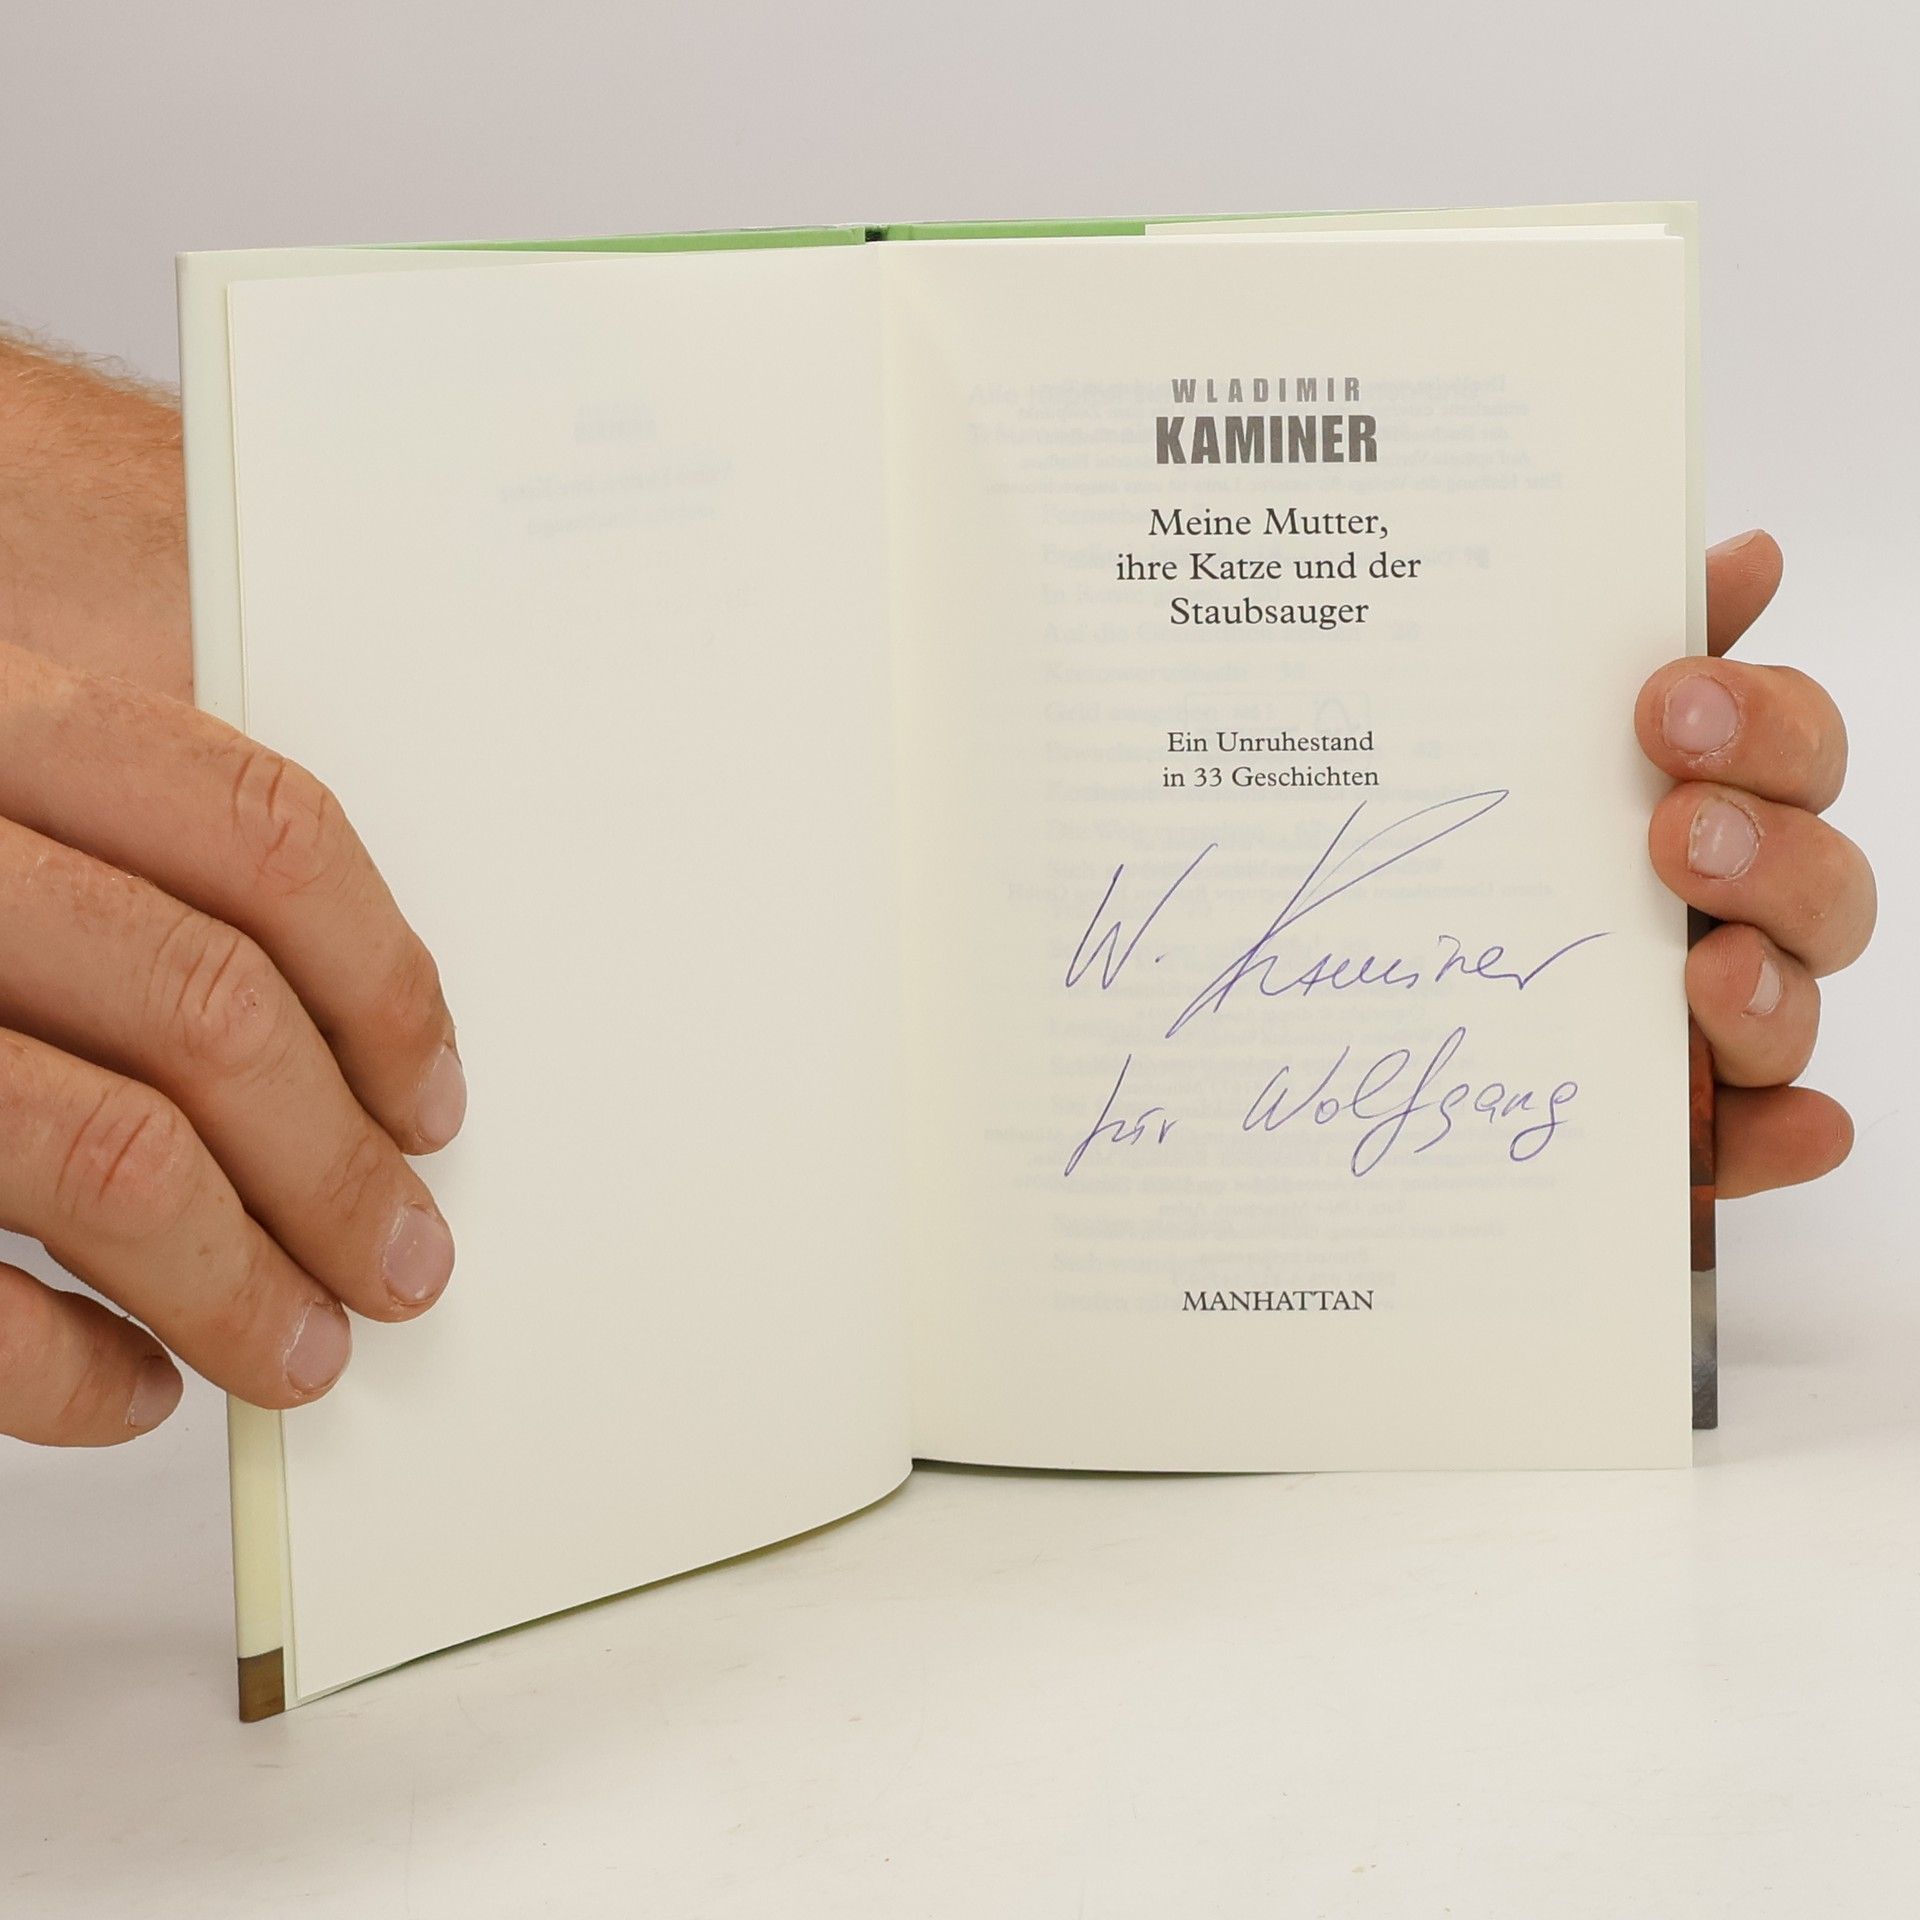 WLADIMIR
KAMINER
Meine Mutter,
ihre Katze und der
Staubsauger
Ein Unruhestand
in 33 Geschichten
W. Kaminer
für Wolfgang
MANHATTAN